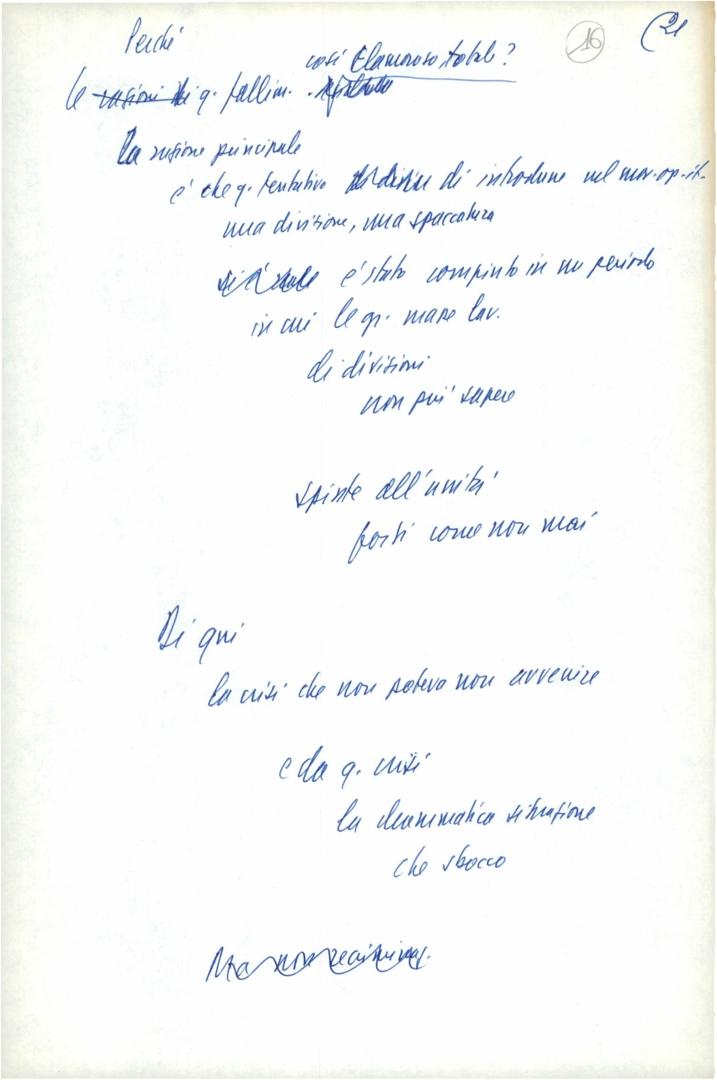 16
21
Perché
così clamoroso totale?
le ragioni di q. fallim.
la ragione principale
è che q. tentativo di introdurre nel mov. op. it.
una divisione, una spaccatura
è stato compiuto in un periodo
in cui le gr. masse lav.
di divisioni
non più sapere
spinte all'unità
forti come non mai
Di qui
la crisi che non poteva non avvenire
e da q. crisi
la drammatica situazione
che sbocco
Ma non recimin.